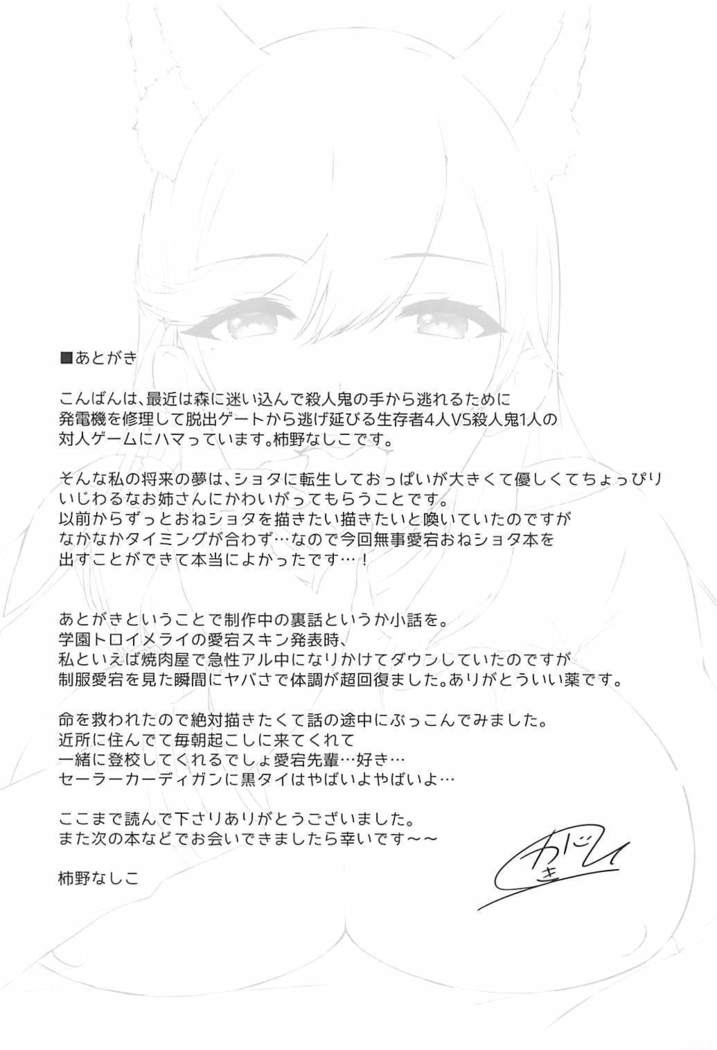 ■あとがき
こんばんは、最近は森に迷い込んで殺人鬼の手から逃れるために
発電機を修理して脱出ゲートから逃げ延びる生存者4人VS殺人鬼1人の
対人ゲームにハマっています。柿野なしこです。
そんな私の将来の夢は、ショタに転生しておっぱいが大きくて優しくてちょっぴり
いじわるなお姉さんにかわいがってもらうことです。
以前からずっとおねショタを描きたい描きたいと喚いていたのですが
なかなかタイミングが合わず…なので今回無事愛宕おねショタ本を
出すことができて本当によかったです…！
あとがきということで制作中の裏話というか小話を。
学園トロイメライの愛宕スキン発表時、
私といえば焼肉屋で急性アル中になりかけてダウンしていたのですが
制服愛宕を見た瞬間にヤバさで体調が超回復ました。ありがとういい薬です。
命を救われたので絶対描きたくて話の途中にぶっこんでみました。
近所に住んでて毎朝起こしに来てくれて
一緒に登校してくれるでしょ愛宕先輩…好き…
セーラーカーディガンに黒タイはやばいよやばいよ…
ここまで読んで下さりありがとうございました。
また次の本などでお会いできましたら幸いです〜〜
柿野なしこ